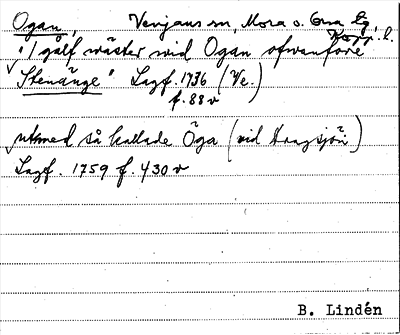 Ogan, Venjans sn, Mora o. Ona Eg.
Kopp. l.
"1 gålf mäster wid Ogan ofwanföre
Stenänge" Lagf. 1736 (Ve.)
f. 88 v
utmed så kallade Öga (vid
Lagf. 1759 f. 430 v
B. Lindén